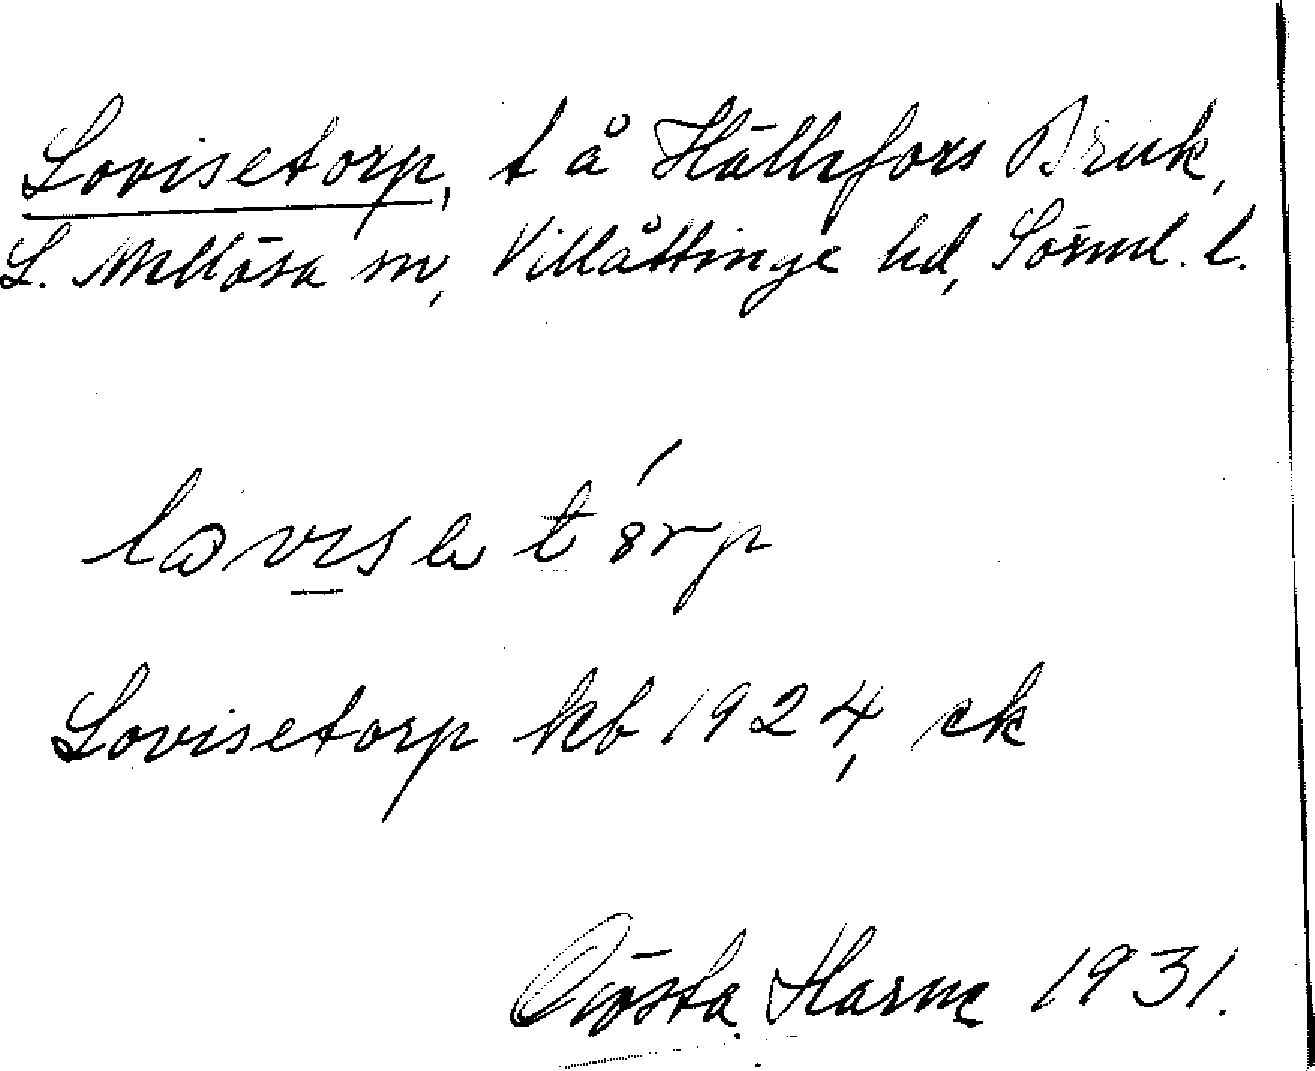 Lovisetorp, t å Hälleforss Bruk,
L. Mellösa sn, Villåttinge hd, Sörml. l.
Lovisetorp kb 1924, ek
Gösta Harne 1931.